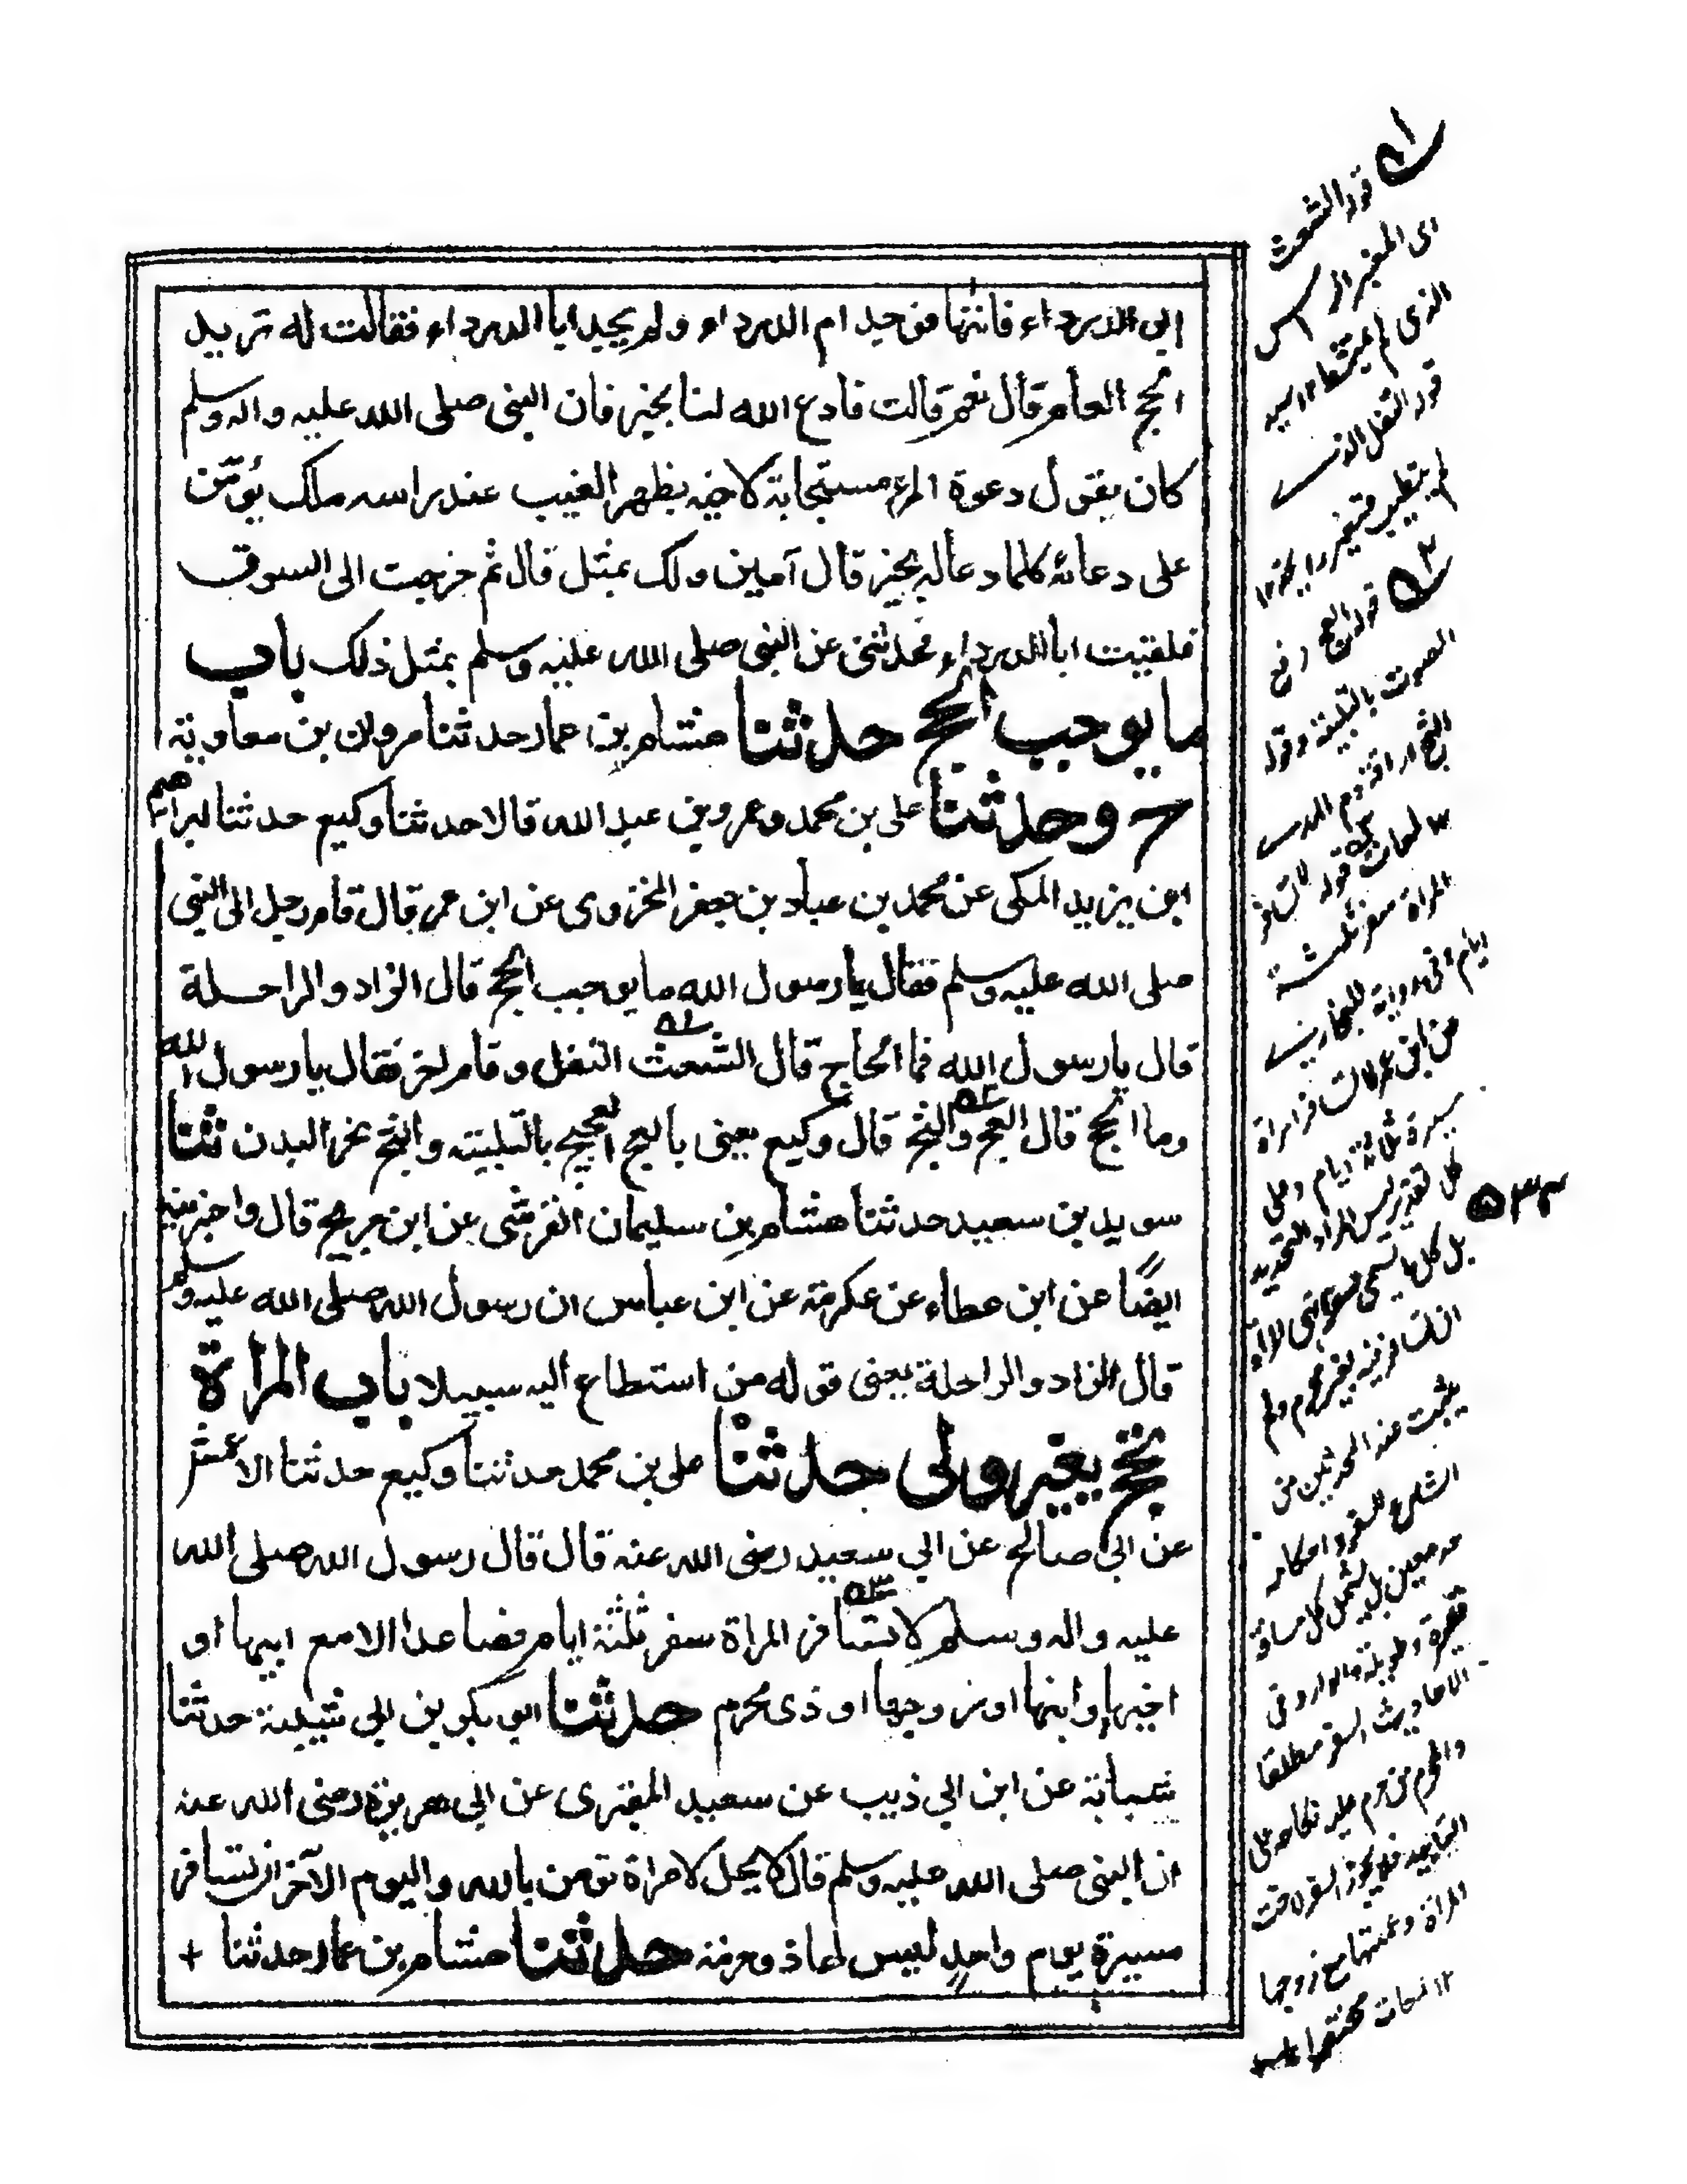 ابي الدرداء فاتتها فوجد ام الدرداء ولم يجد ابا الدرداء فقالت له تريد
الحج العام قال نعم قالت فادع الله لنا بخير فان النبي صلى الله عليه واله وسلم
كان يقول دعوة المرء مستجابة لاخيه بظهر الغيب عند راسه ملك يؤمن
على دعائه كلما دعا له بخير قال آمين ولك بمثل قال ثم خرجت الى السوق
فلقيت ابا الدرداء فحدثني عن النبي صلى الله عليه وسلم بمثل ذلك باب
ما يوجب الحج حدثنا هشام بن عمار حدثنا مروان بن معاوية
ح وحدثنا على بن محمد وعمرو بن عبد الله قالا حدثنا وكيع حدثنا ابراهيم
ابن يزيد المكى عن محمد بن عباد بن جعفر المخزومى عن ابن عمر قال قام رجل الى النبي
صلى الله عليه وسلم فقال يا رسول الله ما يوجب الحج قال الزاد والراحلة
قال يا رسول الله فما الحاج قال الشعث التفل وقام اخر فقال يا رسول الله
وما الحج قال العج والثج قال وكيع يعنى بالعج العجيج بالتلبية والثج نحر البدن ثنا
سويد بن سعيد حدثنا هشام بن سليمان القرشى عن ابن جريج قال واخبرنيه
ايضًا عن ابن عطاء عن عكرمة عن ابن عباس ان رسول الله صلى الله عليه وسلم
قال الزاد والراحلة يعنى قوله من استطاع اليه سبيلا باب المراة
تحج بغير ولى حدثنا على بن محمد حدثنا وكيع حدثنا الاعمش
عن ابى صالح عن ابي سعيد رضى الله عنه قال قال رسول الله صلى الله
عليه واله وسلم لا تسافر المراة سفر ثلثة ايام فصاعدا الا مع ابيها او
اخيها وابنها او زوجها او ذى محرم حدثنا ابو بكر بن ابي شيبة حدثنا
شبابة عن ابن ابي ذيب عن سعيد المقبرى عن ابي هريرة رضى الله عنه
ان النبى صلى الله عليه وسلم قال لا يحل لامراة تومن بالله واليوم الآخر ان تسافر
مسيرة يوم واحد ليس لها ذو حرمة حدثنا هشام بن عمار حدثنا +
قوله الشعث
اى المغبر الراس
الذى لم يمتشط
قوله التفل الذى
لم يتطيب
قوله العج رفع
الصوت بالتلبية وقوله
الثج
لمعات قوله لا تسافر
المراة سفر ثلثة
ايام وفى رواية للبخارى
عن ابن عمر
مسيرة ثلثة ايام
ليس المراد التحديد
بل كل ما يسمى
بغير محرم ولم
يثبت عند المحدثين من
الشارع للسفر
الاحاديث السفر مطلقا
والمحرم من حرم عليه نكاحه على
التابيد
المراة وعمتها مع زوجها
١٢ لمعات مختصرا
٥٣٢